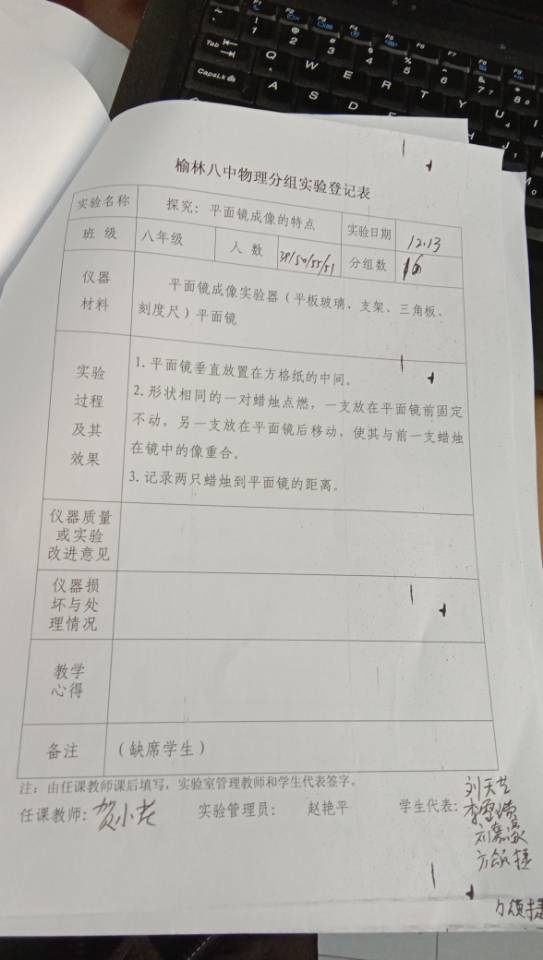 榆林八中物理分组实验登记表
实验名称 探究：平面镜成像的特点 实验日期 12.13
班 级 八年级 人 数 /50/55/51 分组数 16
仪器
材料
平面镜成像实验器（平板玻璃、支架、三角板、
刻度尺）平面镜
实验
过程
及其
效果
1.平面镜垂直放置在方格纸的中间。
2.形状相同的一对蜡烛点燃，一支放在平面镜前固定
不动，另一支放在平面镜后移动，使其与前一支蜡烛
在镜中的像重合。
3.记录两只蜡烛到平面镜的距离。
仪器质量
或实验
改进意见
仪器损
坏与处
理情况
教学
心得
备注 （缺席学生）
注：由任课教师课后填写，实验室管理教师和学生代表签字。
任课教师: 贺小老 实验管理员： 赵艳平 学生代表: